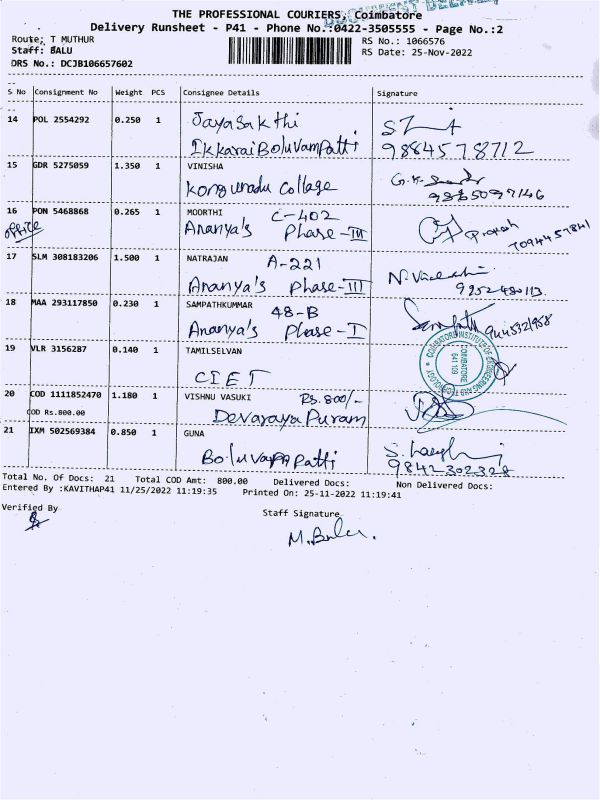 THE PROFESSIONAL COURIERS, Coimbatore
Delivery Runsheet - P41 - Phone No.:0422-3505555 - Page No.:2
Route: T MUTHUR RS No.: 1066576
Staff: BALU RS Date: 25-Nov-2022
DRS No.: DCJB106657602
S No Consignment No Weight PCS Consignee Details Signature
14 POL 2554292 0.250 1 Jayasakthi
Ikkarai Boluvampatti 9884578712
15 GDR 5275059 1.350 1 VINISHA
Kongunadu Collage 9865097146
16 PON 5468868 0.265 1 MOORTHI C-402
office Ananya's Phase-III Prakash 7094457841
17 SLM 308183206 1.500 1 NATRAJAN A-221
Ananya's Phase-III 9952480113
18 MAA 293117850 0.230 1 SAMPATHKUMMAR 48-B
Ananya's Phase-I 9445321958
19 VLR 3156287 0.140 1 TAMILSELVAN
CIET
COIMBATORE INSTITUTE OF ENGINEERING AND TECHNOLOGY
COIMBATORE 641 109
20 COD 1111852470 1.180 1 VISHNU VASUKI Rs.800/-
COD Rs.800.00 Devaraya Puram
21 IXM 502569384 0.850 1 GUNA
Boluvampatti 9842302328
Total No. Of Docs: 21 Total COD Amt: 800.00 Delivered Docs: Non Delivered Docs:
Entered By :KAVITHAP41 11/25/2022 11:19:35 Printed On: 25-11-2022 11:19:41
Verified By
Staff Signature
M. Balu.